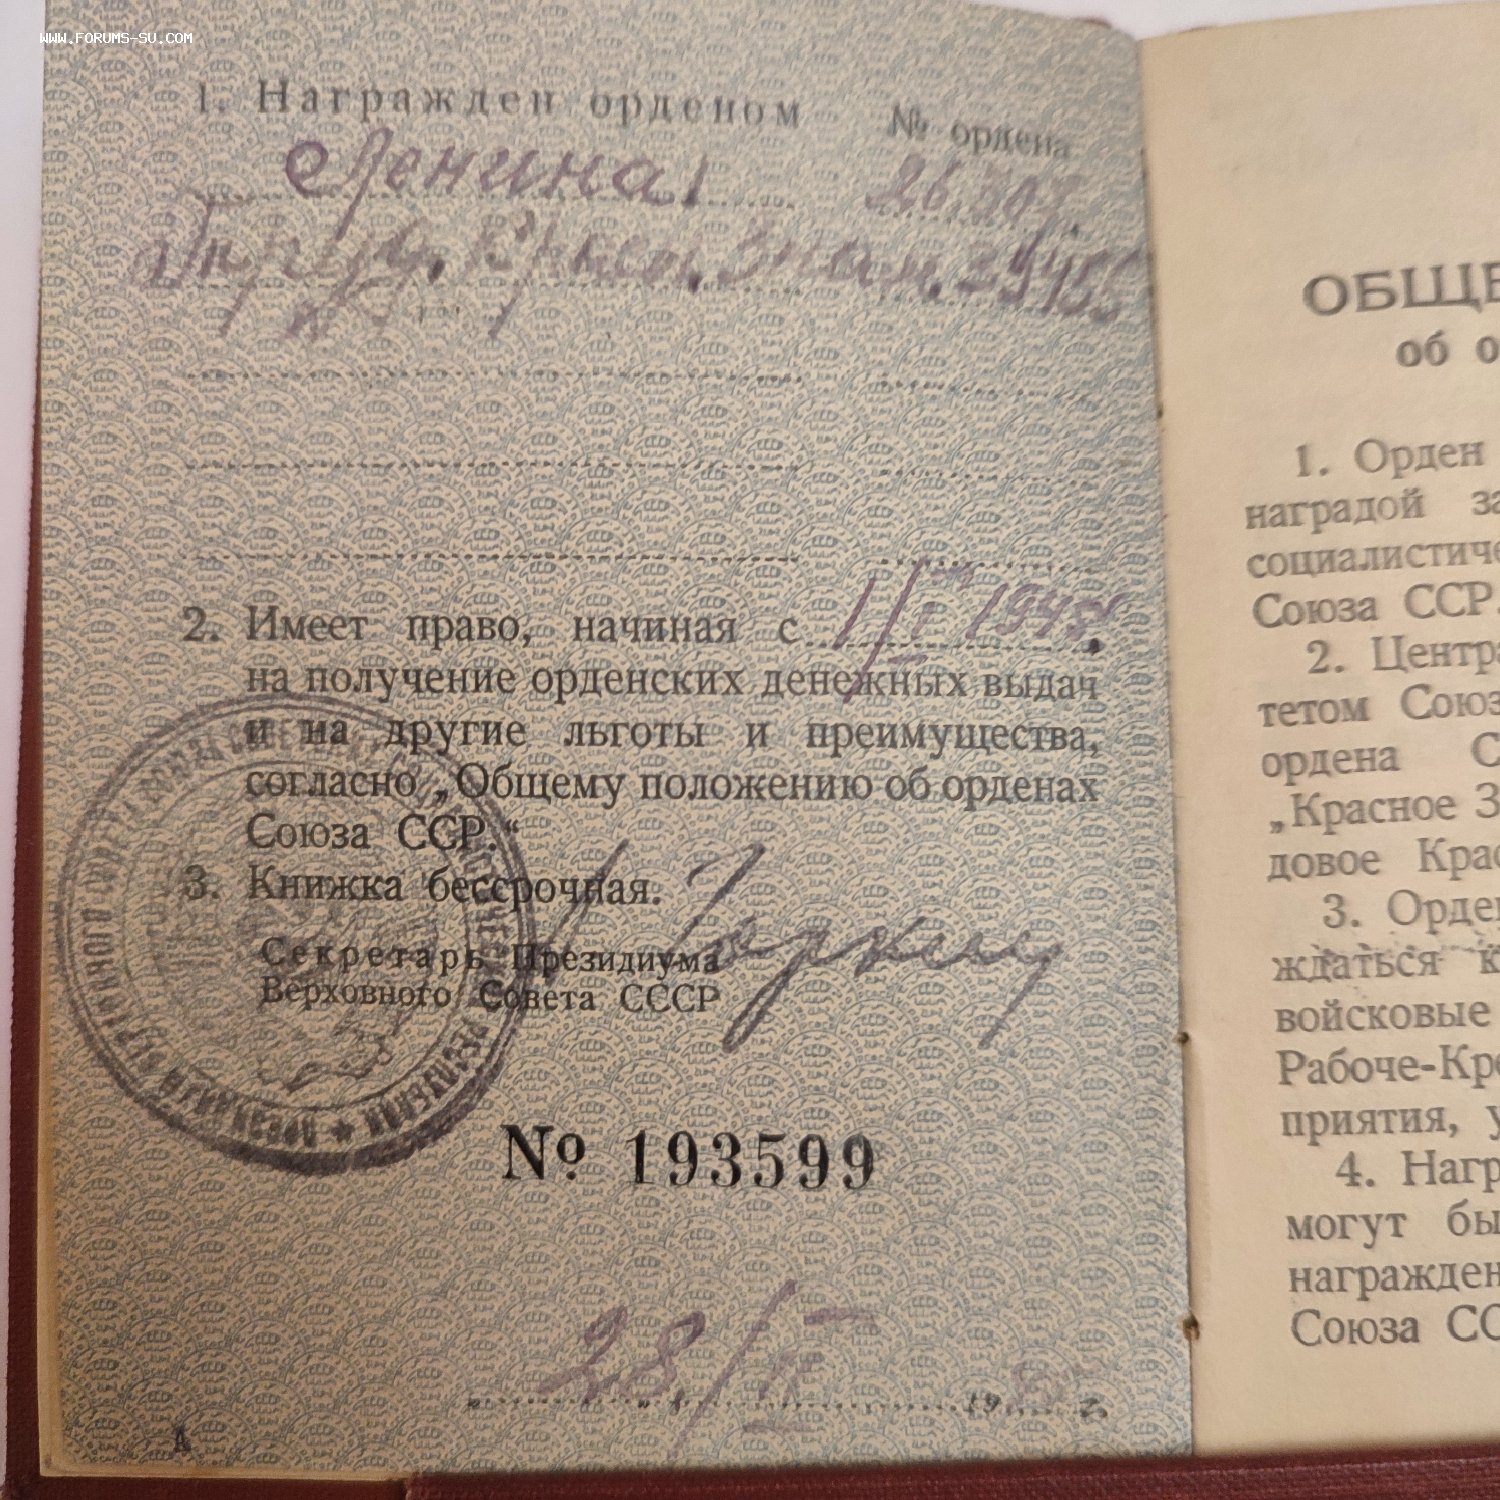 WWW.FORUMS-SU.COM
1. Награжден орденом № ордена
Ленина,
Труд. Красн. Знам.
2. Имеет право, начиная с 1/I 1948.
на получение орденских денежных выдач
и на другие льготы и преимущества,
согласно „Общему положению об орденах
Союза ССР.“
3. Книжка бессрочная.
Секретарь Президиума
Верховного Совета СССР
№ 193599
28/ 19 г.
А
ОБЩЕ
об о
1. Орден
наградой за
социалистиче
Союза ССР.
2. Центра
тетом Союз
ордена С
„Красное З
довое Крас
3. Орде
ждаться к
войсковые
Рабоче-Кре
приятия, у
4. Нагр
могут бы
награжден
Союза СС